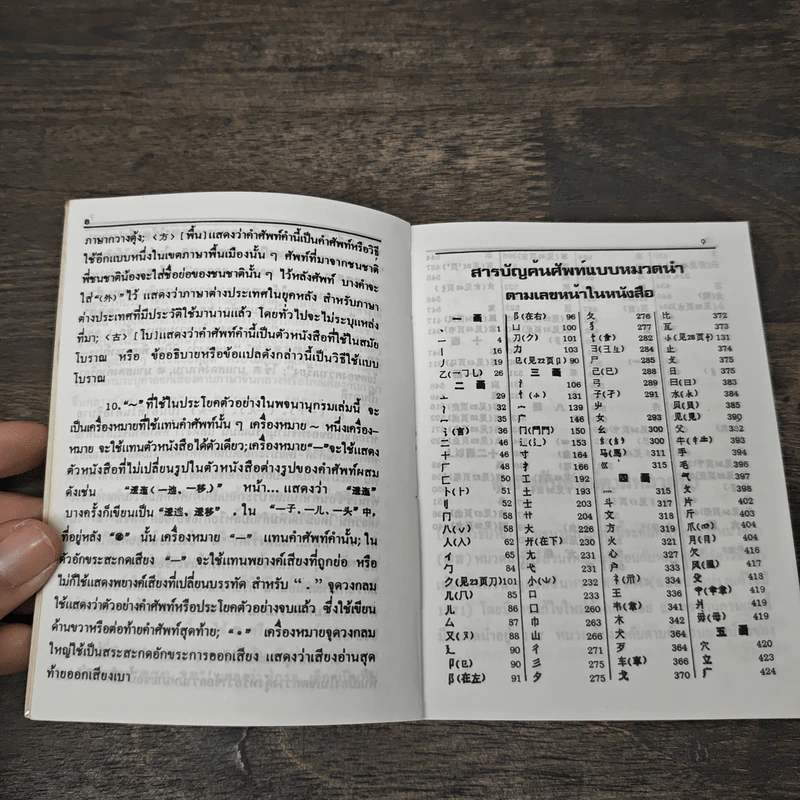 8
ภาษากวางตุ้ง; <方> [พื้น] แสดงว่าคำศัพท์คำนี้เป็นคำศัพท์หรือวิธี
ใช้อีกแบบหนึ่งในเขตภาษาพื้นเมืองนั้น ๆ ศัพท์ที่มาจากชนชาติ
พี่ชนชาติน้องจะใส่ชื่อย่อของชนชาตินั้น ๆ ไว้หลังศัพท์ บางคำจะ
ใส่ “(外)” ไว้ แสดงว่าภาษาต่างประเทศในยุคหลัง สำหรับภาษา
ต่างประเทศที่มีประวัติใช้มานานแล้ว โดยทั่วไปจะไม่ระบุแหล่ง
ที่มา; <古> [โบ] แสดงว่าคำศัพท์คำนี้เป็นตัวหนังสือที่ใช้ในสมัย
โบราณ หรือ ข้ออธิบายหรือข้อแปลดังกล่าวนี้เป็นวิธีใช้แบบ
โบราณ
10. “～” ที่ใช้ในประโยคตัวอย่างในพจนานุกรมเล่มนี้ จะ
เป็นเครื่องหมายที่ใช้แทนคำศัพท์นั้น ๆ เครื่องหมาย ～ หนึ่งเครื่อง-
หมาย จะใช้แทนตัวหนังสือได้ตัวเดียว; เครื่องหมาย “—” จะใช้แทน
ตัวหนังสือที่ไม่เปลี่ยนรูปในตัวหนังสือต่างรูปของคำศัพท์ผสม
ดังเช่น หน้า... แสดงว่า
บางครั้งก็เขียนเป็น . ใน “一子、一儿、一头” 中,
ที่อยู่หลัง นั้น เครื่องหมาย “—” แทนคำศัพท์คำนั้น; ใน
ตัวอักขระสะกดเสียง “—” จะใช้แทนพยางค์เสียงที่ถูกย่อ หรือ
ไม่ก็ใช้แสดงพยางค์เสียงที่เปลี่ยนบรรทัด สำหรับ “ . ” จุดวงกลม
ใช้แสดงว่าตัวอย่างคำศัพท์หรือประโยคตัวอย่างจบแล้ว ซึ่งใช้เขียน
ด้านขวาหรือต่อท้ายคำศัพท์สุดท้าย; “•” เครื่องหมายจุดวงกลม
ใหญ่ใช้เป็นสระสะกดอักขระการออกเสียง แสดงว่าเสียงอ่านสุด
ท้ายออกเสียงเบา
๙
สารบัญค้นศัพท์แบบหมวดนำ
ตามเลขหน้าในหนังสือ
一 画
丶 1
一 4
丨 16
丿 19
乙(乛乚) 26
二 画
亠 29
冫 32
冖 35
讠(言) 36
二 44
十 46
厂 50
匚 50
卜(⺊) 51
刂 52
冂 58
八(丷) 58
人(入) 62
亻 65
勹 84
ク(见23页刀) 101
几 85
儿 86
厶 87
又(ヌ) 88
廴 90
卩(㔾) 90
阝(在左) 91
阝(在右) 96
凵 100
刀(ク) 101
力 103
㔾(见22页卩) 90
三 画
氵 106
忄(⺗) 131
宀 139
广 146
门(門) 150
辶(辶) 153
寸 164
扌 166
工 192
土 193
士 203
艹 204
大 226
廾(在下) 230
尤 231
弋 231
小(⺌) 232
口 235
囗 260
巾 263
山 266
彳 271
彡 275
夕 275
夂 276
犭 277
饣(食) 282
彐(彑) 284
尸 285
己(巳) 288
弓 289
子(孑) 291
屮 292
女 293
幺 300
纟(糹) 300
马(馬) 311
巛 315
四 画
灬 315
斗 317
文 318
方 319
火 321
心 329
户 333
礻(示) 334
王 336
韦(韋) 341
木 342
犬 364
歹 364
车(車) 366
戈 370
比 372
瓦 373
⺗(见28页忄) 131
止 374
攴 375
日 375
曰 383
水(氺) 384
贝(貝) 385
见(見) 390
父 392
牛(牜) 393
手 394
毛 396
气 397
攵 398
片 402
斤 403
爪(爫) 404
月 404
欠 416
风(風) 417
殳 418
419
爿 419
毋(母) 419
五 画
穴 420
立 423
疒 424